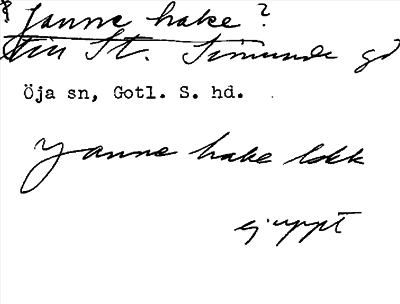 Janne hake?
till St. Simunde gd
Öja sn, Gotl. S. hd.
Janne hake lokk
ej uppt